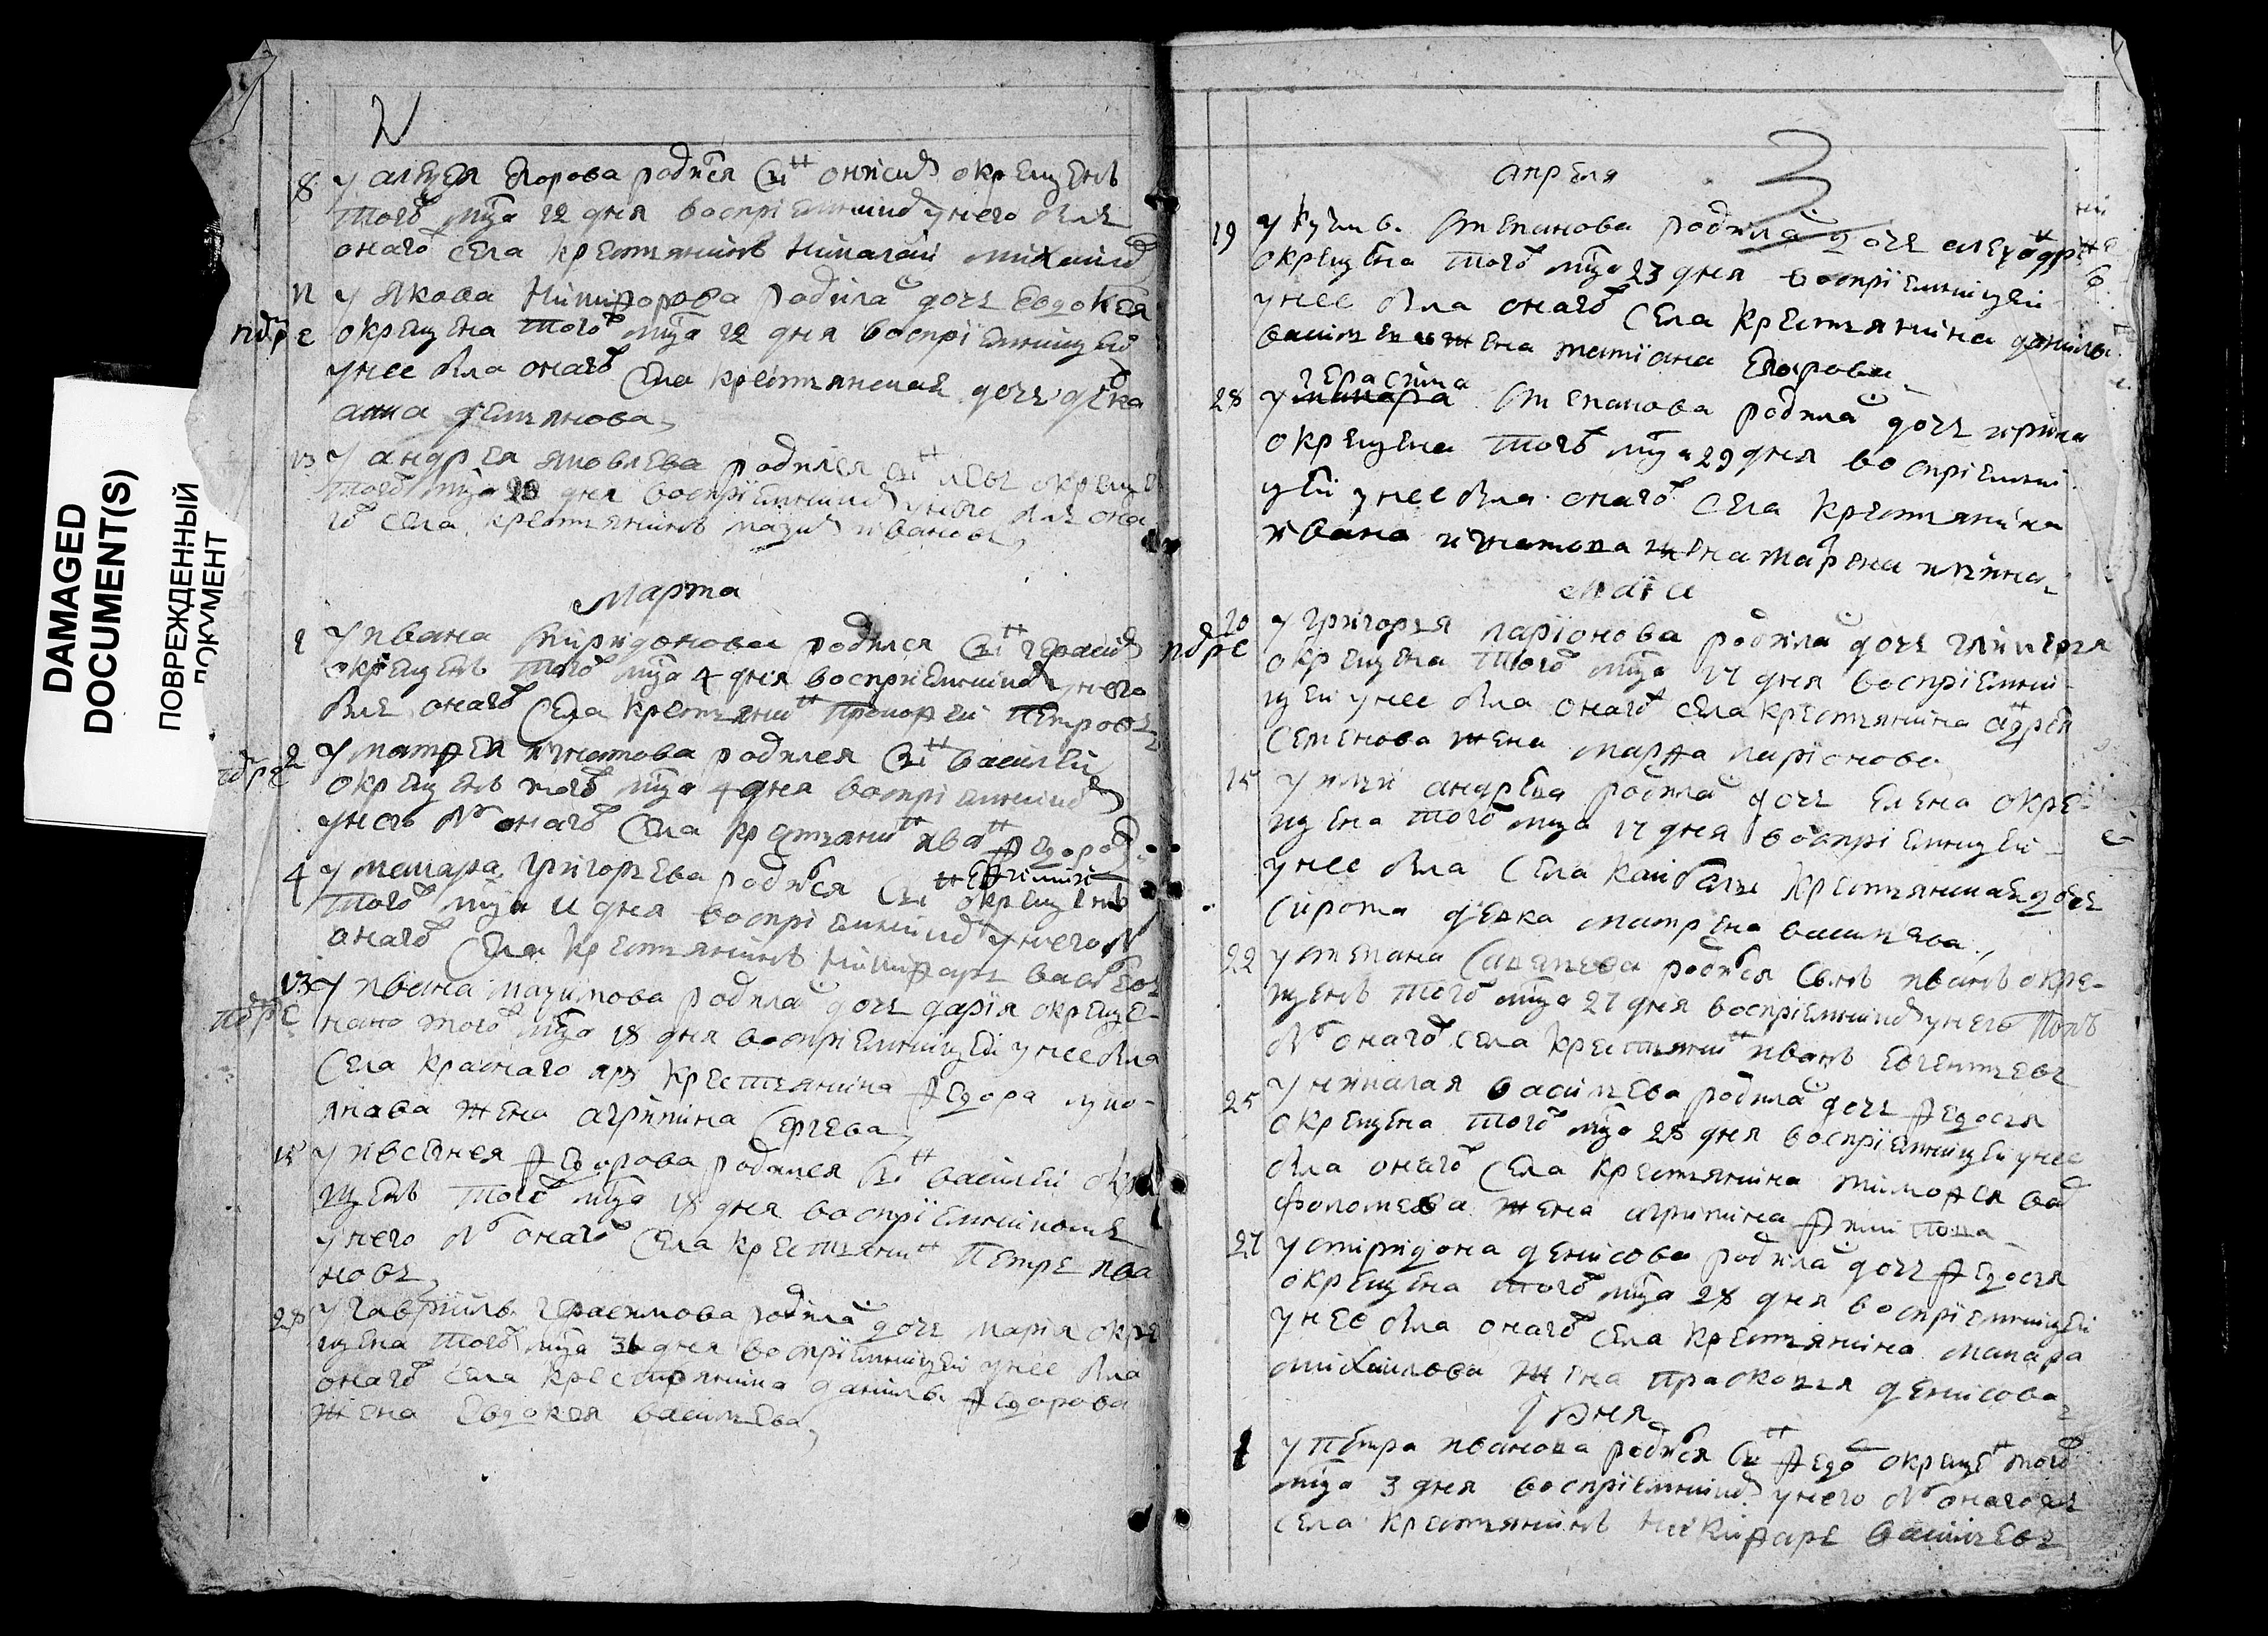 DAMAGED
DOCUMENT(S)
ПОВРЕЖДЕННЫЙ
ДОКУМЕНТ
2
8 у Егорова родися снъ крещенъ
того мца 12 дня воспріемникъ у него былъ
онаго села крестьянинъ михаило
11 у Якова Никифорова родиласъ дочь Евдокея
крещена того мца 12 дня воспріемницей
у нее была онаго села крестьянская дочь девка
анна демьянова
13 у андрея яковлева родился снъ левъ
того мца дня воспріемникъ у него былъ она
го села крестьянинъ ивановъ
Марта
1 у ивана спиридонова родился снъ герасимъ
окрещенъ того мца 4 дня воспріемникъ у него
былъ онаго села крестьянинъ прокофей петровъ
2 у матфея игнатова родился снъ василей
окрещенъ того мца 4 дня воспріемникъ
у него б онаго села крестьянинъ иванъ федоровъ
4 у макара григорьева родися снъ окрещенъ
того мца 11 дня воспріемникъ у него б
онаго села крестьянинъ никифаръ
13 у ивана родила дочь дарія окреще
на того мца 18 дня воспріемницей у нее была
села краснаго яру крестьянина федора луко
янава жена агрипина сергева
15 у федорова родился снъ василей окре
щенъ того мца 18 дня воспріемникомъ
у него б онаго села крестьянинъ петръ ива
новъ
28 у гаврилы герасимова родила дочь марія окре
щена того мца 31 дня воспріемницей у нее была
онаго села крестьянина данилы федорова
жена Евдокея васильева
3
апреля
19 у кузмы степанова родила дочь
окрещена того мца 23 дня воспріемницей
у нее была онаго села крестьянина данилы
жена татіана Егорова
герасима
28 у степанова родила дочь ирина
окрещена того мца 29 дня воспріемни
цей у нее была онаго села крестьянина
ивана игнатова жена марена ильина
маіа
10 у григорья ларіонова родила дочь гликерья
окрещена того мца 17 дня воспріемни
цей у нее была онаго села крестьянина андрея
семенова жена марфа ларіонова
15 у ильи андрева родила дочь Елена окре
щена того мца 17 дня воспріемницей
у нее была села каибелы крестьянская дочь
сирота девка матрена василява
22 у степана савельева родися сынъ иванъ окре
щенъ того мца 27 дня воспріемникъ у него
б онаго села крестьянинъ иванъ Евгентьевъ
25 у николая васильева родила дочь федосья
окрещена того мца 28 дня воспріемницей у нее
была онаго села крестьянина тимофея ва
фоломева жена агрипина филипова
27 у спиридона денисова родила дочь федосья
окрещена того мца 28 дня воспріемницей
у нее была онаго села крестьянина макара
михаилова жена прасковья денисова
іюня
1 у петра иванова родися снъ федо окреще того
мца 3 дня воспріемникъ у него б онаго
села крестьянинъ никифаръ васильевъ